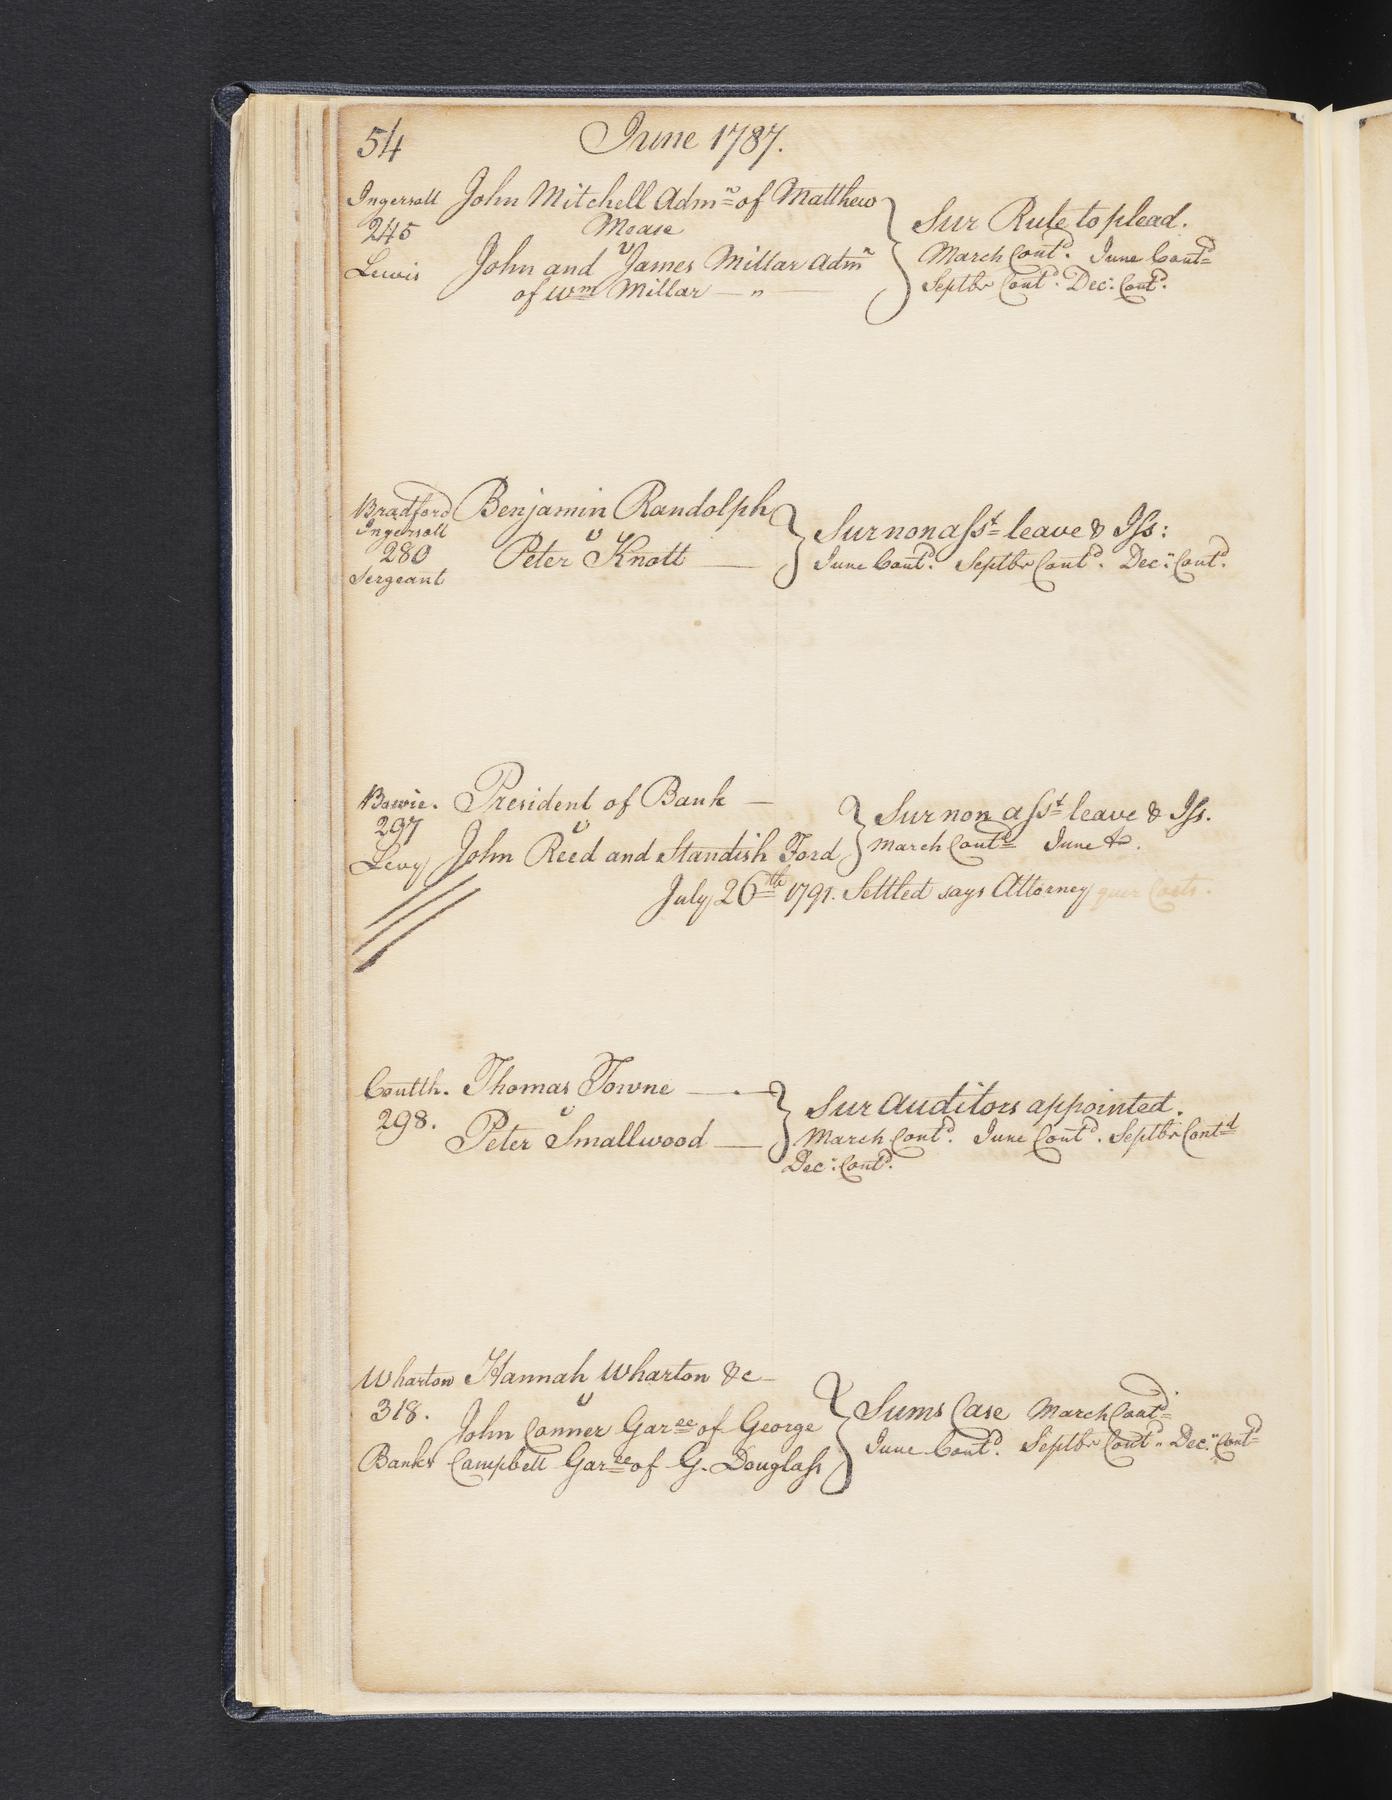 54 June 1787.
Ingersoll John Mitchell Admr of Matthew
245 Mease
v
Lewis John and James Millar Admr
of Wm Millar — " —
Sur Rule to plead.
March Contd. June Contd
Septbr Contd. Dec: Contd.
Bradford Benjamin Randolph
Ingersoll v
280 Peter Knott —
Sergeant
Sur non asst leave & Iss:
June Contd. Septbr Contd. Dec: Contd.
Bowie. President of Bank —
297 v
Levy John Reed and Standish Ford
Sur non asst leave & Iss.
March Contd June &c.
July 26th 1791. Settled says Attorney quer Costs.
Coulth. Thomas Towne —
298. v
Peter Smallwood —
Sur Auditors appointed.
March Contd. June Contd. Septbr Contd
Dec: Contd.
Wharton Hannah Wharton &c —
318. v
John Conner Garee of George
Banks Campbell Garee of G. Douglass
Sums Case March Contd
June Contd. Septbr Contd. Dec: Contd